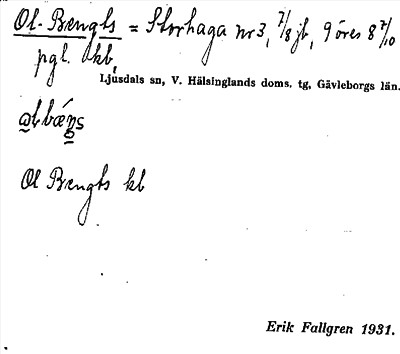 Ol-Bengts = Storhaga nr 3, 7/8 jb, 9 öres 8 7/10
pgl. Okb,
Ljusdals sn, V. Hälsinglands doms. tg, Gävleborgs län.
Ol Bengts kb
Erik Fallgren 1931.